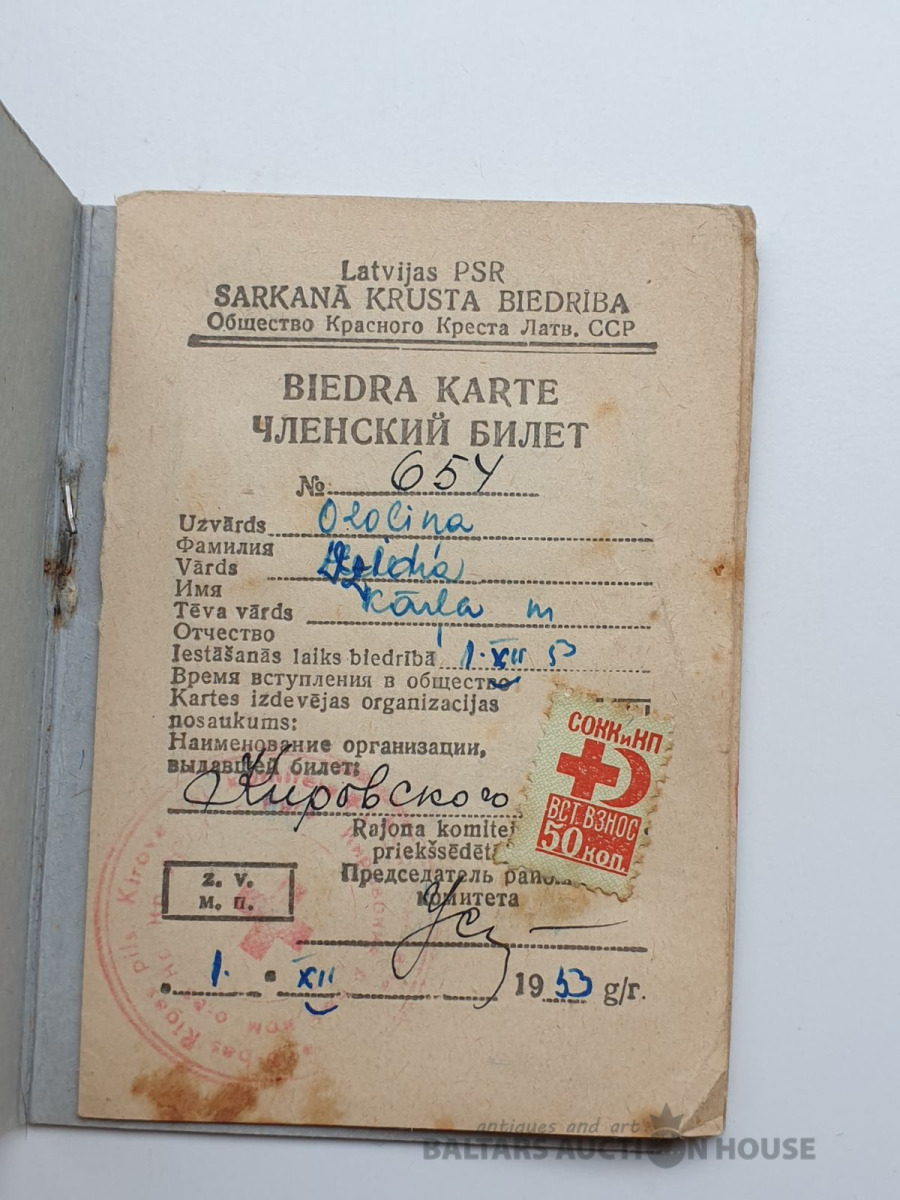 Latvijas PSR
SARKANĀ KRUSTA BIEDRĪBA
Общество Красного Креста Латв. ССР
BIEDRA KARTE
ЧЛЕНСКИЙ БИЛЕТ
№ 654
Uzvārds Ozoliņa
Фамилия
Vārds
Имя
Tēva vārds Kārļa m
Отчество
Iestāšanās laiks biedrībā 1. XII 53
Время вступления в общество
Kartes izdevējas organizacijas
nosaukums:
Наименование организации,
выдавшей билет:
Кировского
СОКК и КП
ВСТ. ВЗНОС
50 коп.
Rajona komitej
priekšsēdēt
Председатель район
комитета
Z. V.
М. П.
1. XII 1953 g/г.
Rīgas pils Kirova
antiques and art
BALTARS AUCTION HOUSE